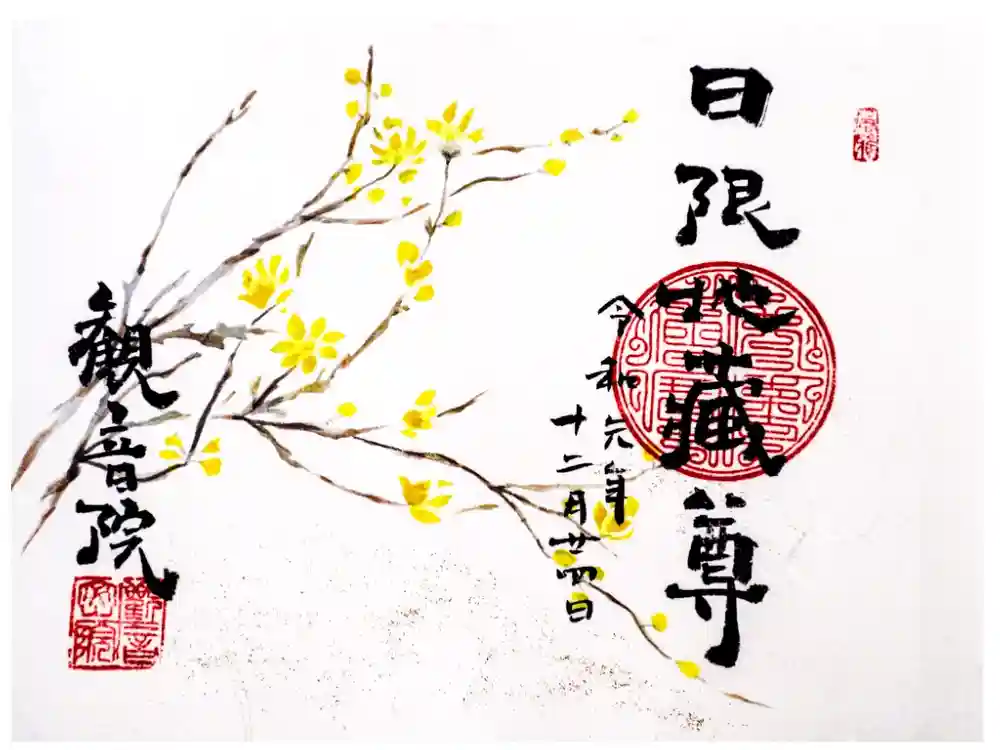 日限地蔵尊
令和元年
十二月廿四日
観音院